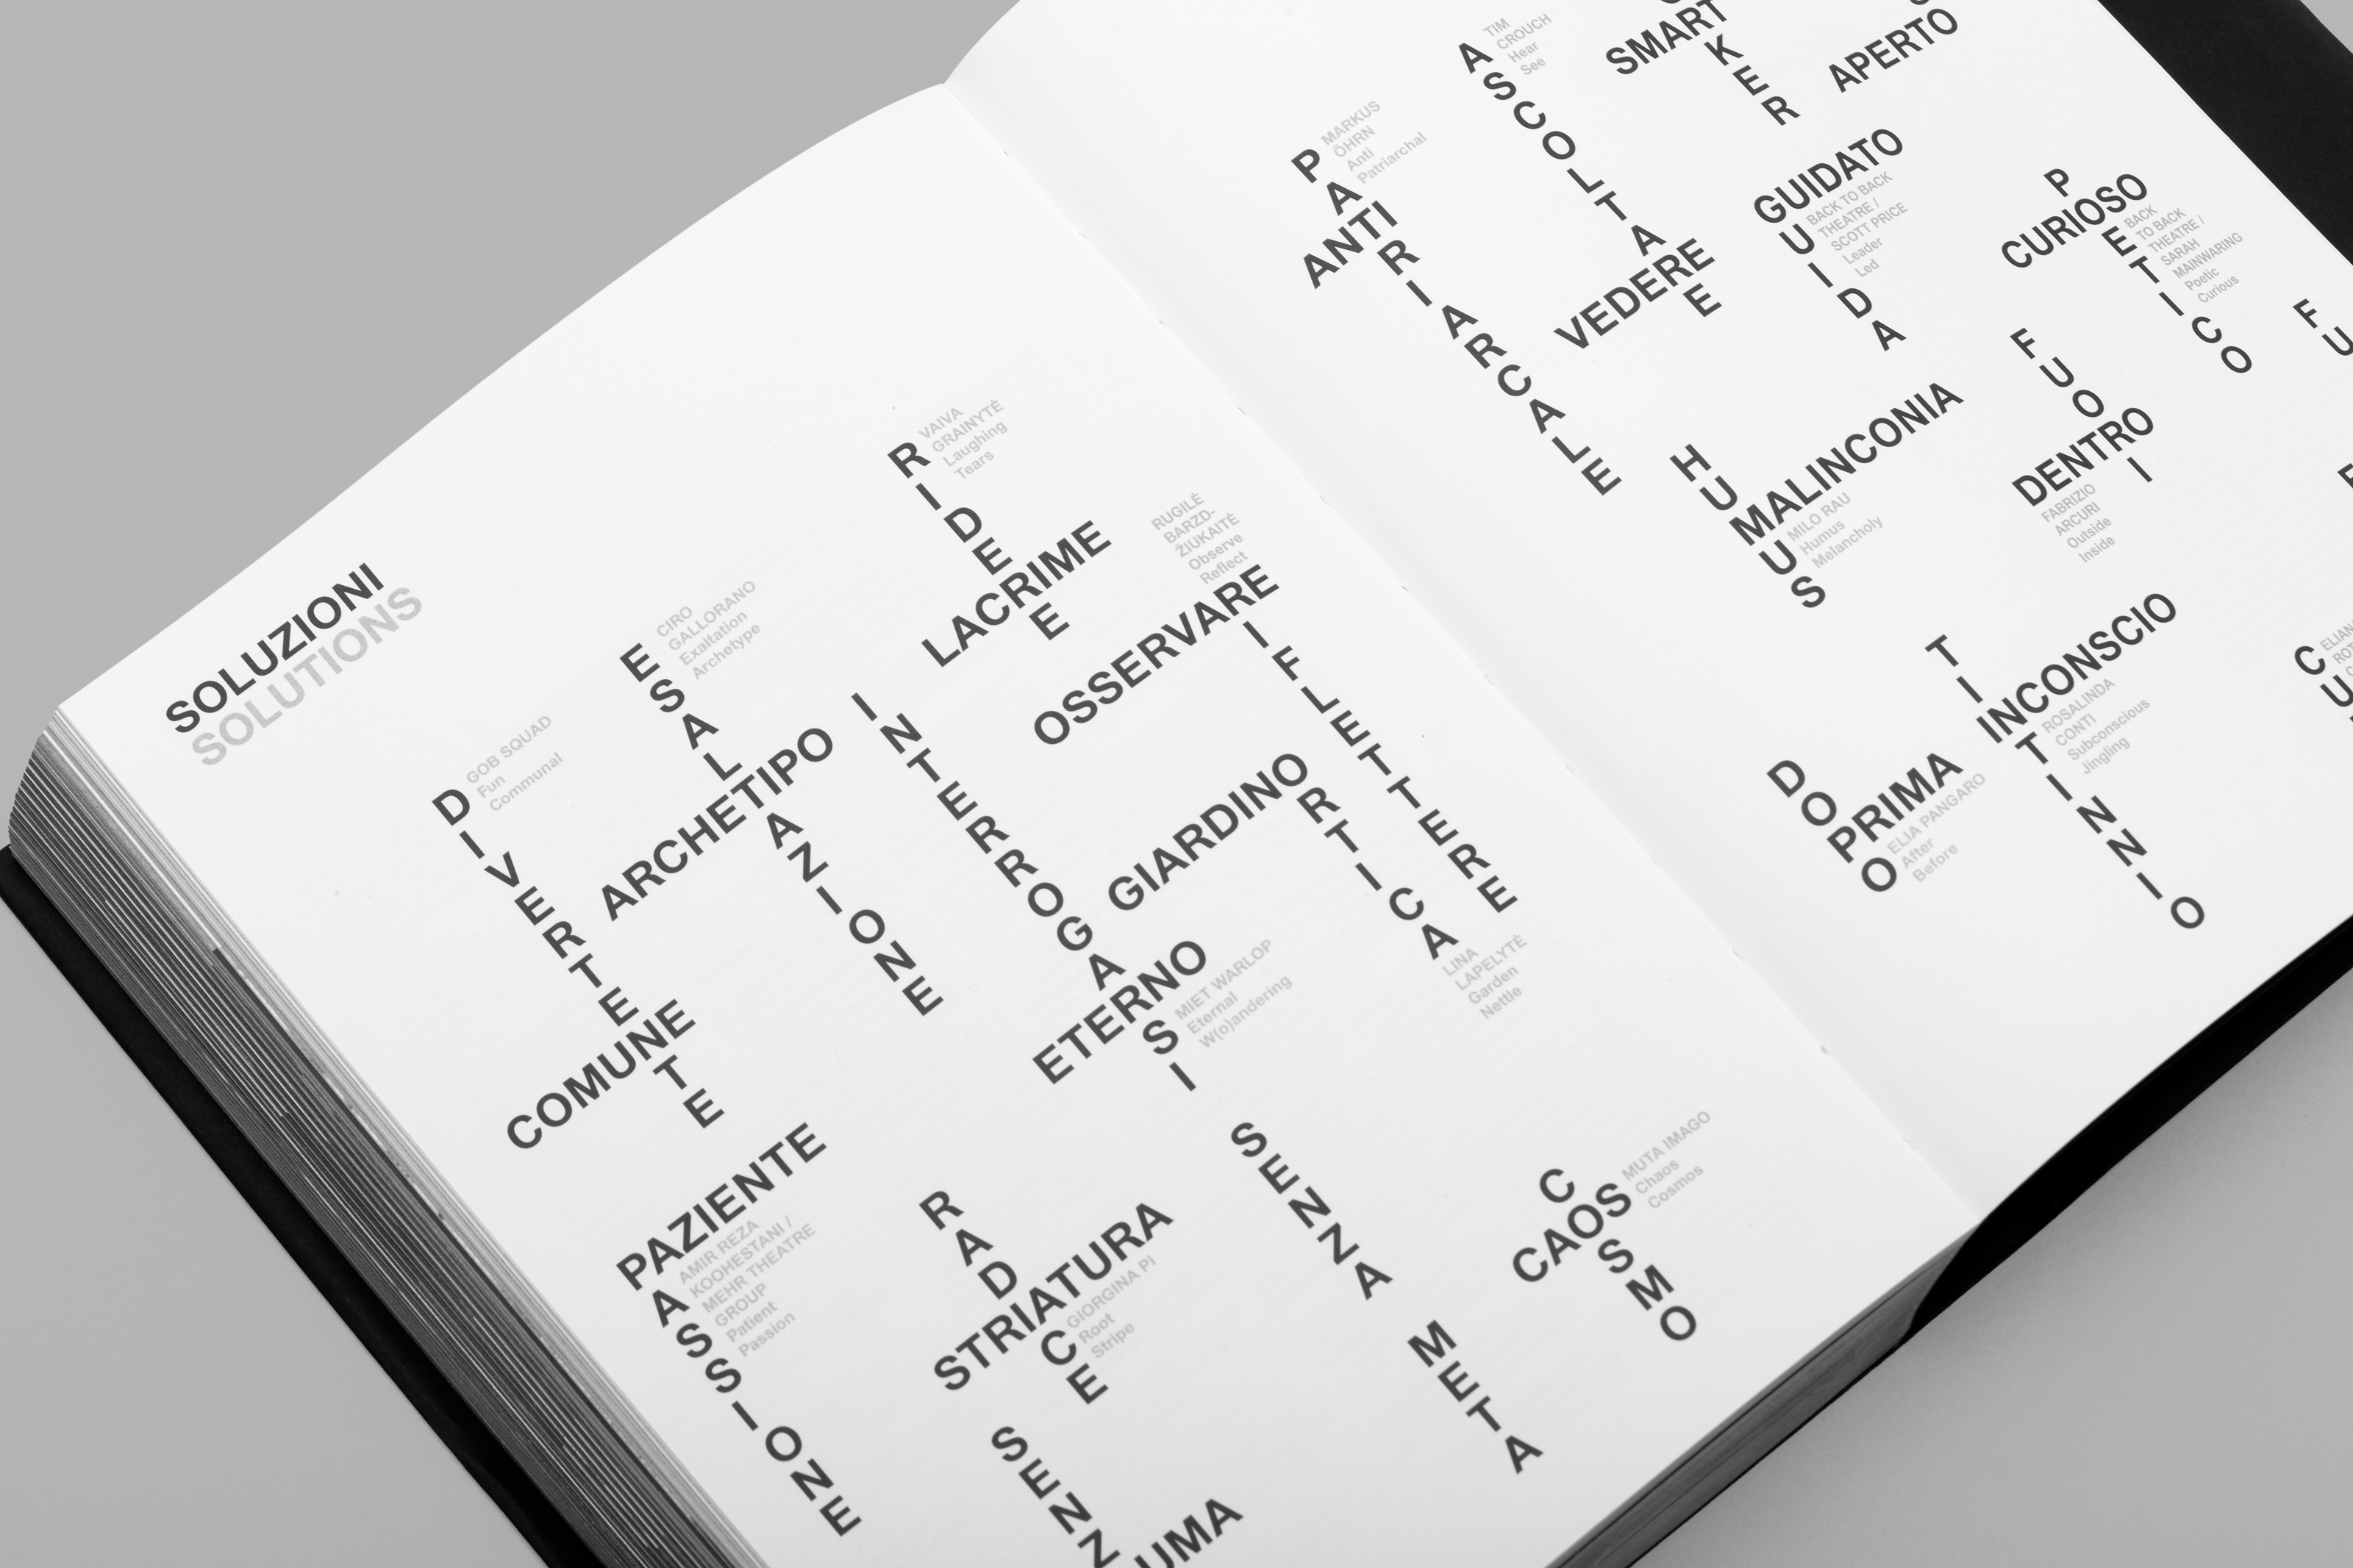 SOLUZIONI
SOLUTIONS
DIVERTENTE
COMUNE
GOB SQUAD
Fun
Communal
ESALTAZIONE
ARCHETIPO
CIRO
GALLORANO
Exaltation
Archetype
RIDERE
LACRIME
VAIVA
GRAINYTĖ
Laughing
Tears
RUGILĖ
BARZD-
ŽIUKAITĖ
Observe
Reflect
OSSERVARE
RIFLETTERE
INTERROGARSI
ETERNO
MIET WARLOP
Eternal
W(o)andering
GIARDINO
ORTICA
LINA
LAPELYTĖ
Garden
Nettle
PAZIENTE
PASSIONE
AMIR REZA
KOOHESTANI /
MEHR THEATRE
GROUP
Patient
Passion
RADICE
STRIATURA
GIORGINA PI
Root
Stripe
SENZA META
COSMO
CAOS
MUTA IMAGO
Chaos
Cosmos
SENZ
UMA
PATRIARCALE
ANTI
MARKUS
ÖHRN
Anti
Patriarchal
ASCOLTARE
VEDERE
TIM
CROUCH
Hear
See
SMART
KER
APERTO
GUIDATO
GUIDA
BACK TO BACK
THEATRE /
SCOTT PRICE
Leader
Led
POETICO
CURIOSO
BACK
TO BACK
THEATRE /
SARAH
MAINWARING
Poetic
Curious
HUMUS
MALINCONIA
MILO RAU
Humus
Melancholy
FUORI
DENTRO
FABRIZIO
ARCURI
Outside
Inside
FU
TINTINNIO
INCONSCIO
ROSALINDA
CONTI
Subconscious
Jingling
DOPO
PRIMA
ELIA PANGARO
After
Before
CU